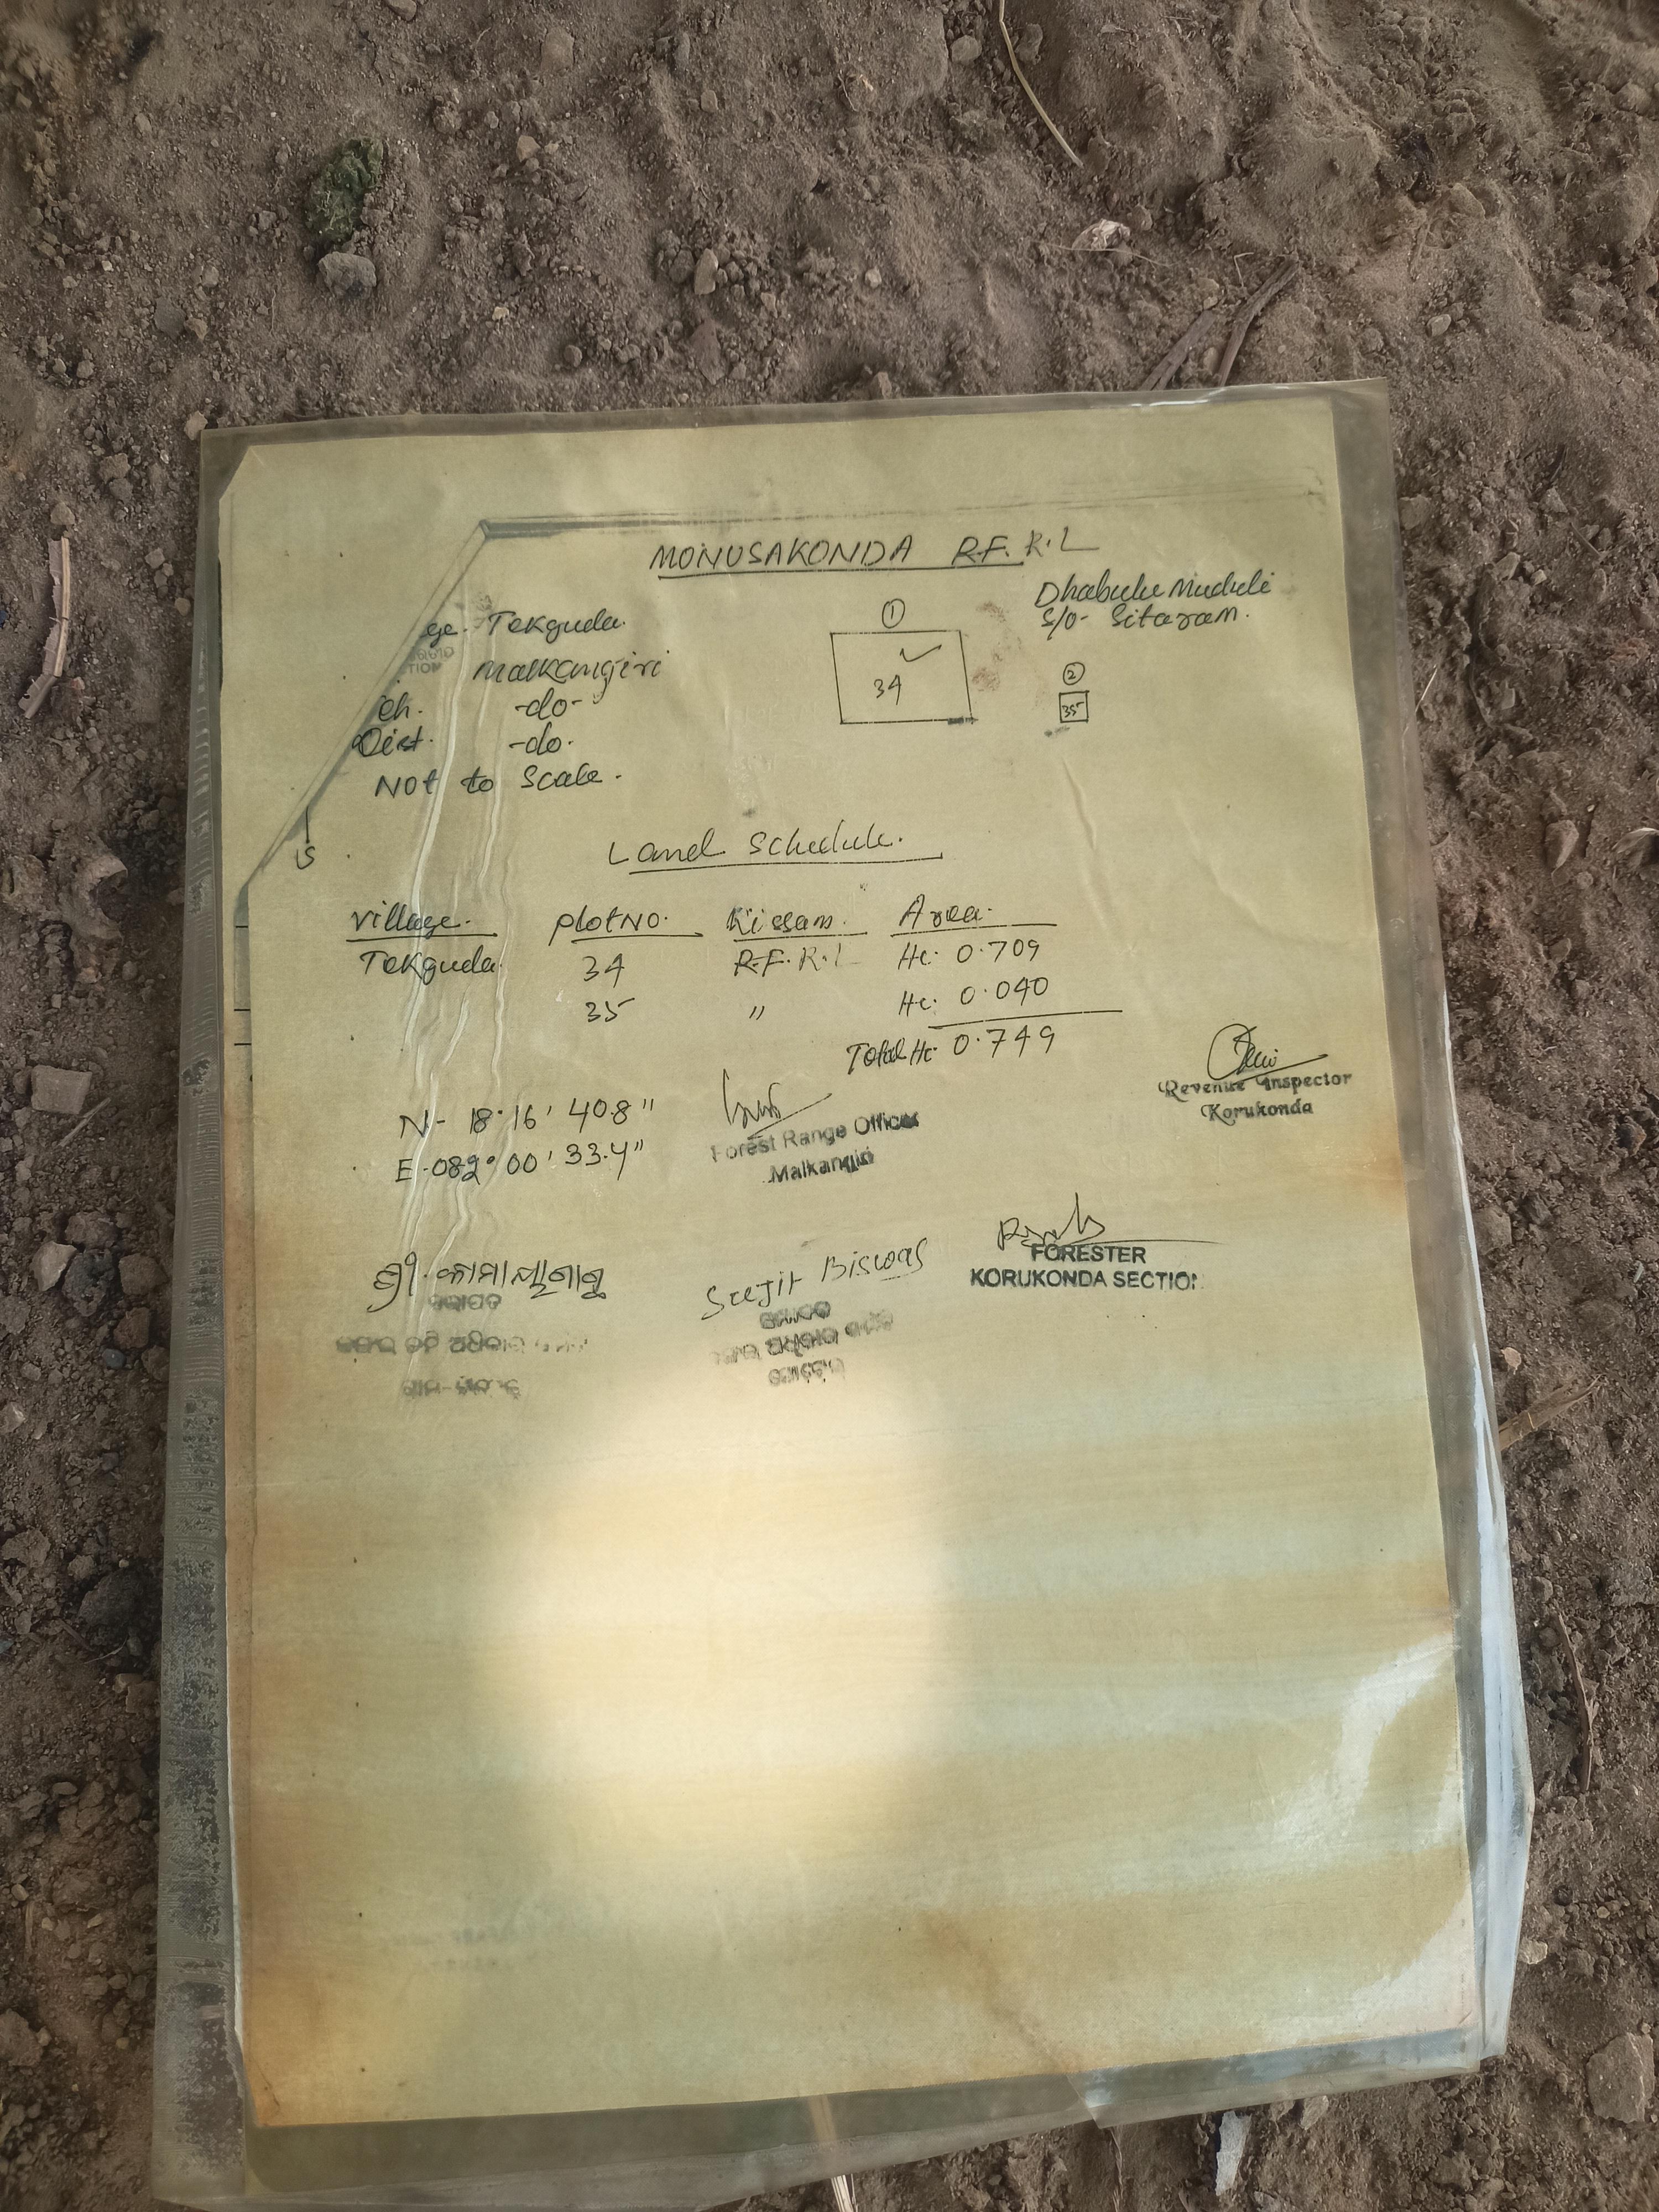 MONUSAKONDA R.F. R.L
Dhabulu Muduli
S/O- Sitaram.
ge. Tekguda.
Malkangiri
eh. -do-
Dist. -do.
Not to Scale.
1
34
2
35
Land Schedule.
Village. Plot No. Kissam. Area.
Tekguda. 34 R.F. R.L Hc. 0.709
35 " Hc. 0.040
Total Hc 0.749
N- 18° 16' 40.8"
E-082° 00' 33.4"
Forest Range Officer
Malkangiri
Revenue Inspector
Korukonda
Sujit Biswas
FORESTER
KORUKONDA SECTION